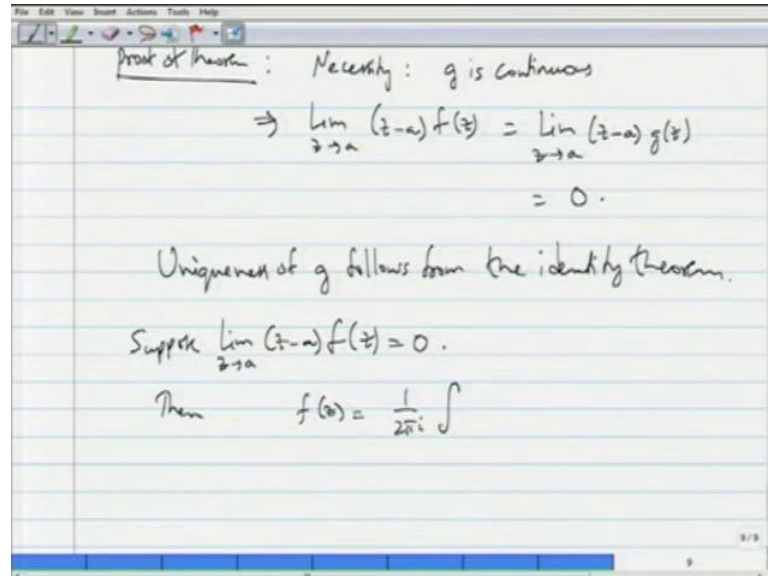 File Edit View Insert Actions Tools Help
Proof of theorem : Necessity : g is continuous
⇒ lim (z-a) f(z) = lim (z-a) g(z)
z→a z→a
= 0 .
Uniqueness of g follows from the identity theorem.
Suppose lim (z-a) f(z) = 0 .
z→a
Then f(z) = 1/2πi ∫
9/9
9